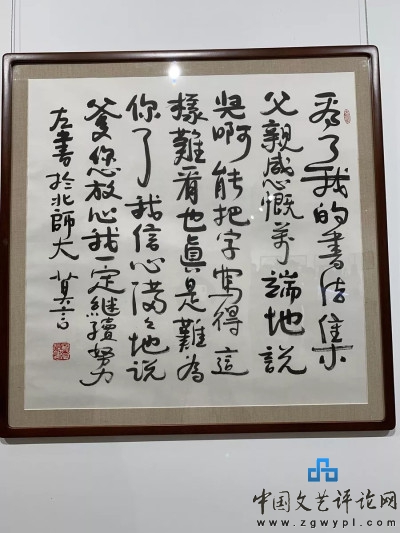 看了我的書法集
父親感慨萬端地説
兒啊能把字寫得這
樣難看也真是難為
你了我信心滿滿地説
爹您放心我一定繼續努力
左書於北師大 莫言
中国文艺评论网
www.zgwypl.com